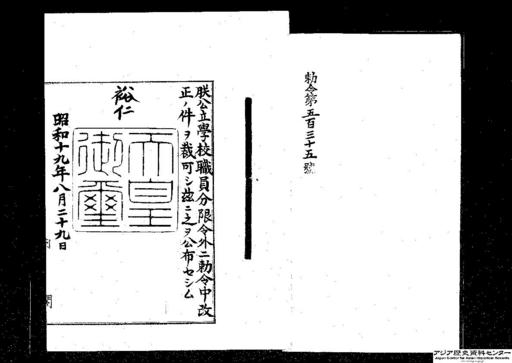 勅令第五百三十五號
朕公立學校職員分限令外二勅令中改
正ノ件ヲ裁可シ茲ニ之ヲ公布セシム
裕仁
天皇
御璽
昭和十九年八月二十九日
アジア歴史資料センター
Japan Center for Asian Historical Records